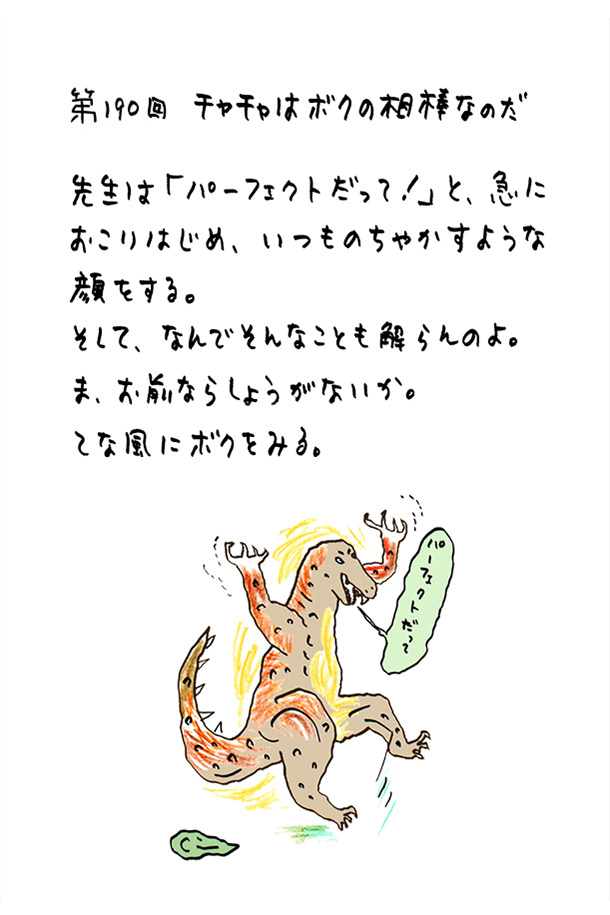 第190回 チャチャはボクの相棒なのだ
先生は「パーフェクトだって!」と、急に
おこりはじめ、いつものちゃかすような
顔をする。
そして、なんでそんなことも解らんのよ。
ま、お前ならしょうがないか。
てな風にボクをみる。
パーフェクトだって